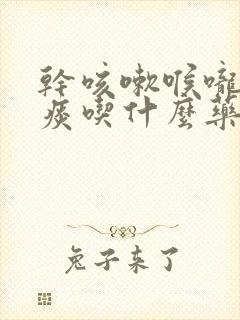 幹咳嗽喉嚨
痰喫什麼藥
兔子来了